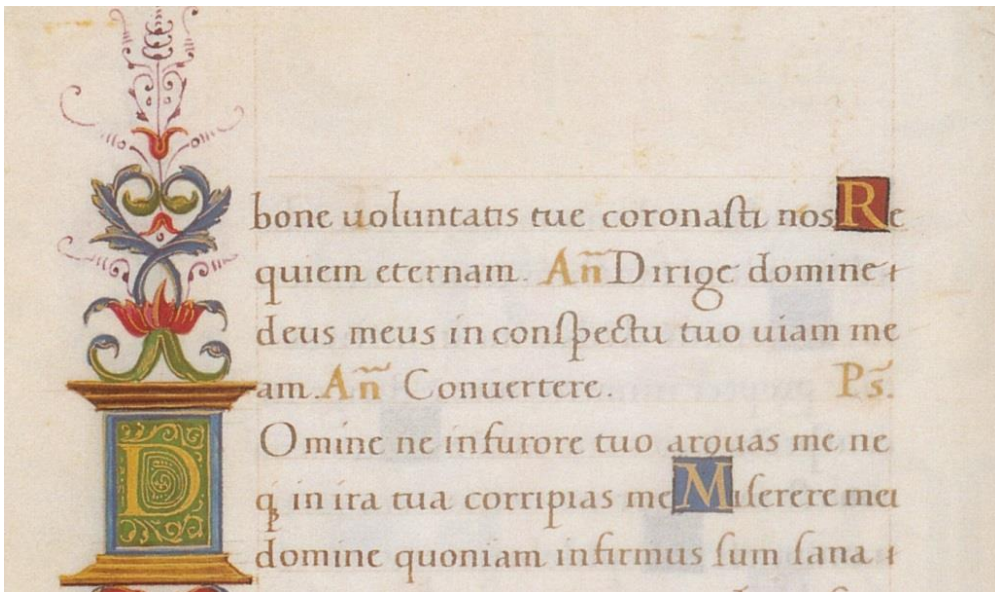 bone uoluntatis tue coronasti nos Re
quiem eternam. Añ Dirige domine
deus meus in conspectu tuo uiam me
am. Añ Conuertere. Ps.
DOmine ne in furore tuo arguas me ne
q; in ira tua corripias me Miserere mei
domine quoniam infirmus sum sana